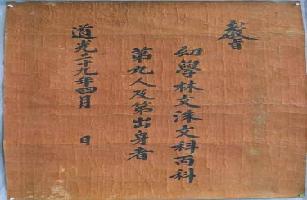 敎旨
幼學林文洙文科丙科
第九人及第出身者
道光二十九年四月 日